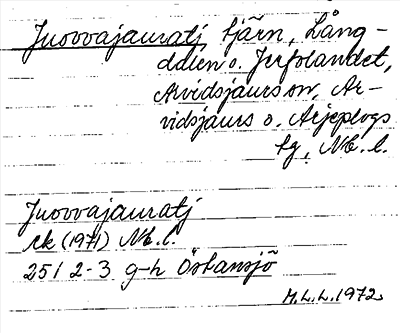 Juovvajauratj, tjärn, Lång-
ddlen o. Jerfolandet,
Arvidsjaurs sn, Ar-
vidsjaurs o. Arjeplogs
tg, Nb. l.
Juovvajauratj
rk (1971) Nb. l.
25 I 2-3 g-h Östansjö
M.L.L. 1972